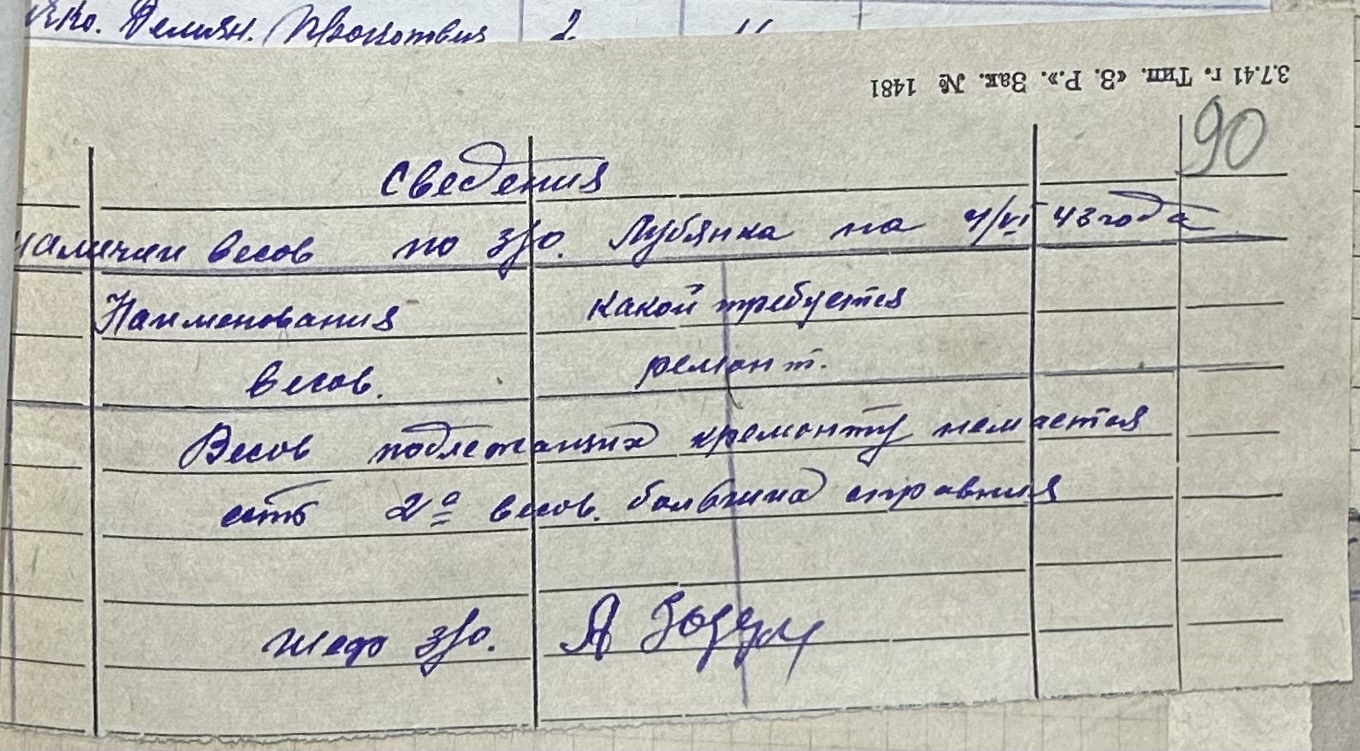 Демян. Прокотвия 2 "
3.7.41 г. Тип. «З. Р.». Зак. № 1481
90
Сведения
наличии весов по з/о. Лубянка на 4/VI 43 года
Наименования какой требуется
весов. ремонт.
Весов подлежащих кремонту немается
есть 2а весов. большиа справния
Шеф з/о. А